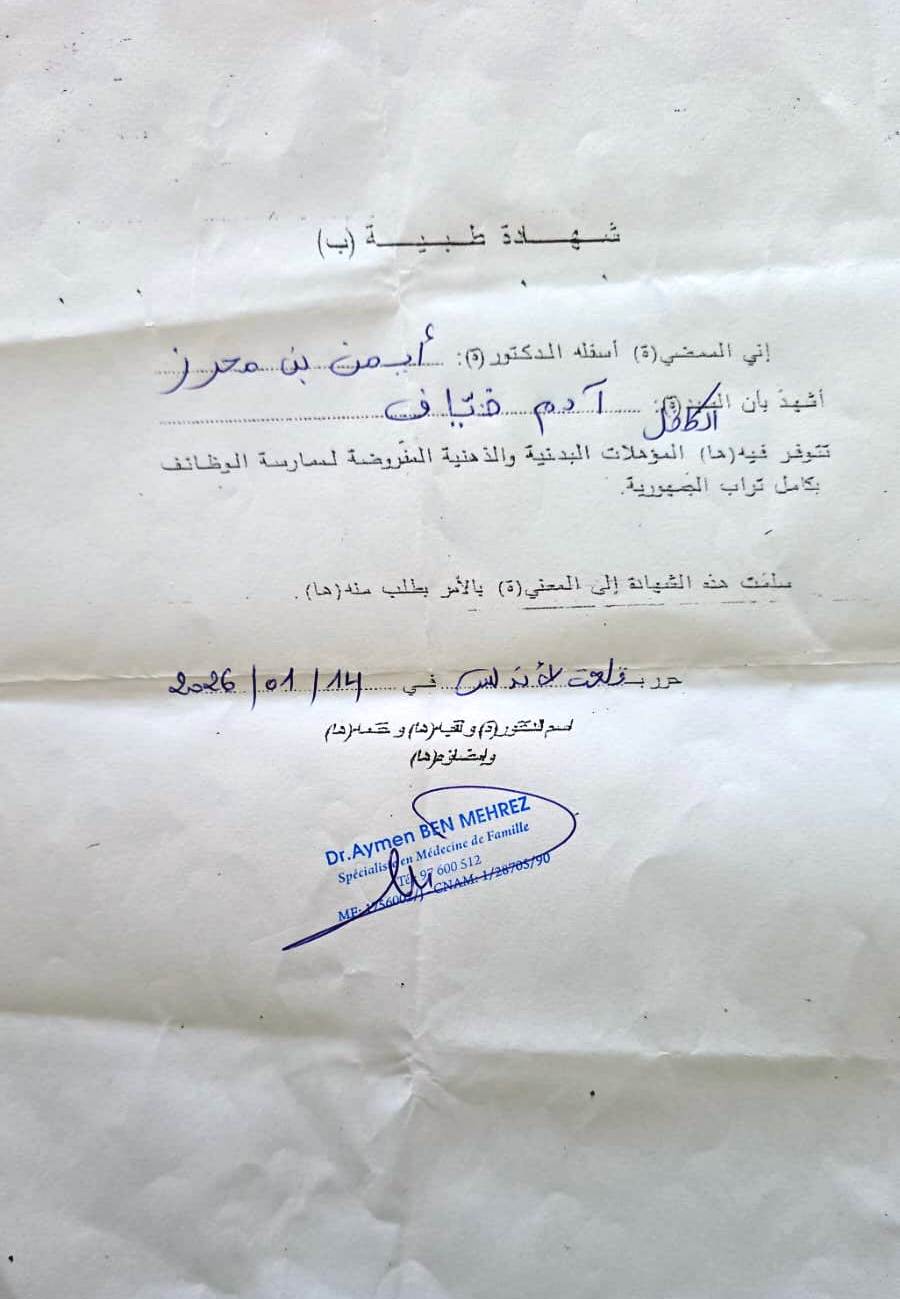 شهادة طبية (ب)
إني الممضي(ة) أسفله الدكتور(ة): أيمن بن محرز
أشهد بأن الطفل آدم ضياف
تتوفر فيه(ها) المؤهلات البدنية والذهنية المفروضة لممارسة الوظائف
بكامل تراب الجمهورية.
سلمت هذه الشهادة إلى المعني(ة) بالأمر بطلب منه(ها).
حرر بـ قلعة الأندلس في 14/01/2026
اسم الدكتور(ة) ولقبه(ها) وختمه(ها)
وإمضاؤه(ها)
Dr.Aymen BEN MEHREZ
Spécialiste en Médecine de Famille
Tél 97 600 512
MF: CNAM: 1/28705/90